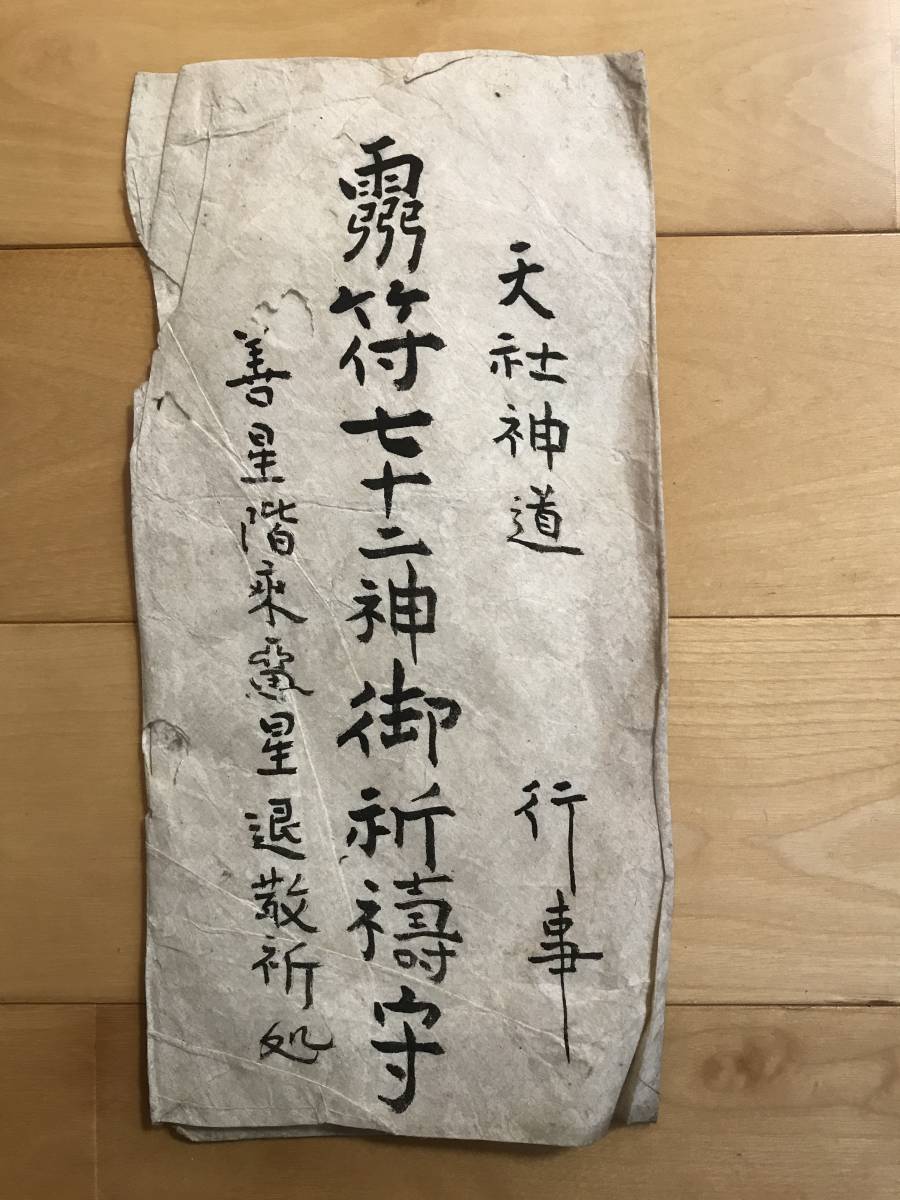 天社神道 行事
靈符七十二神御祈禱守
善星階来惡星退散祈処